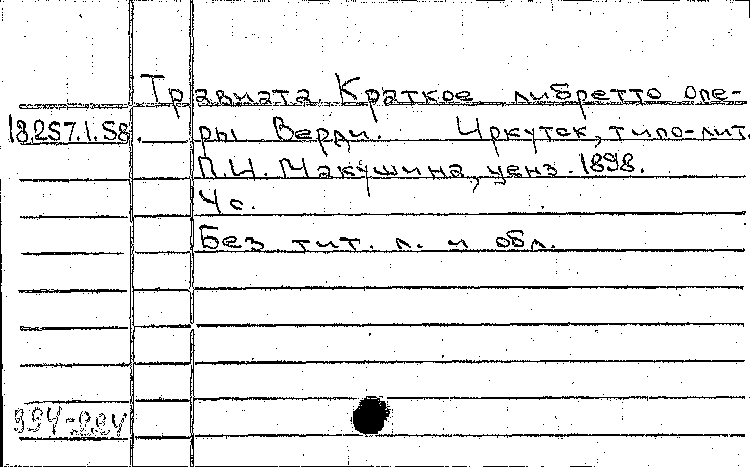 Травиата. Краткое либретто опе-
18.257.1.58. ры Верди. Иркутск, типо-лит.
П.И. Макушина, ценз. 1898.
4 с.
Без тит. л. и обл.